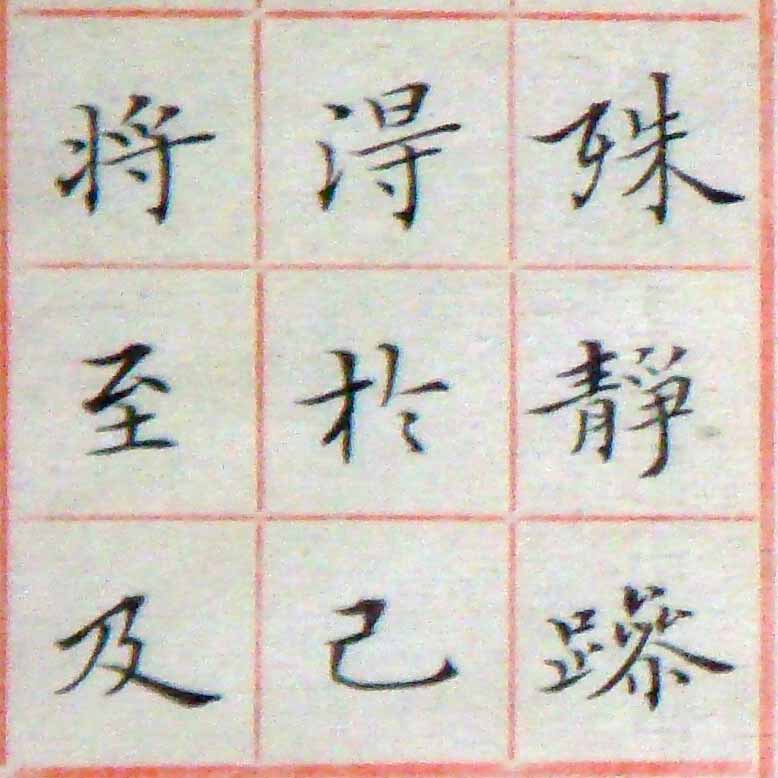 殊靜躁
得於己
将至及